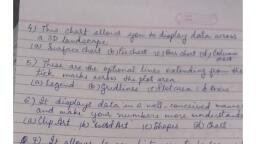 4) This chart allows you to display data across
a 3D landscape.
(a) Surface chart (b) Pie chart (c) Bar chart (d) Column
chart
5) These are the optional lines extending from the
tick marks across the plot area
(a) Legend (b) Gridlines (c) Plot area (d)
6) It displays data in a well-conceived manner
and make your numbers more understand
(a) Clip Art (b) Word Art (c) Shapes (d) Chart
Q 7) It allows